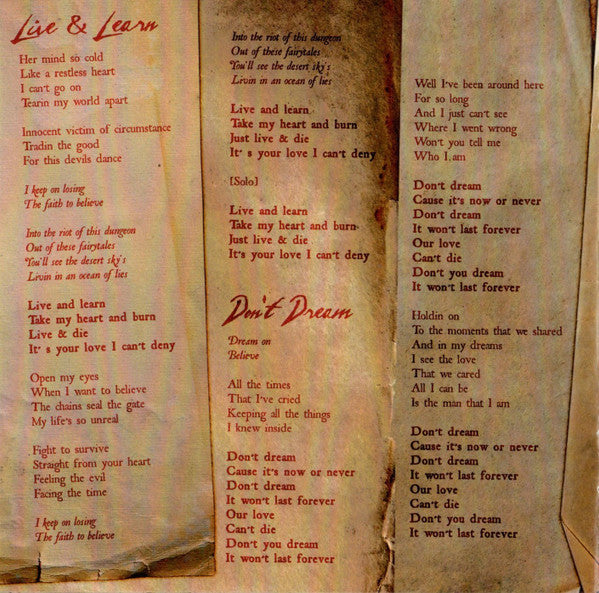 Live & Learn
Her mind so cold
Like a restless heart
I can't go on
Tearin my world apart
Innocent victim of circumstance
Tradin the good
For this devils dance
I keep on losing
The faith to believe
Into the riot of this dungeon
Out of these fairytales
You'll see the desert sky's
Livin in an ocean of lies
Live and learn
Take my heart and burn
Live & die
It's your love I can't deny
Open my eyes
When I want to believe
The chains seal the gate
My life's so unreal
Fight to survive
Straight from your heart
Feeling the evil
Facing the time
I keep on losing
The faith to believe
Into the riot of this dungeon
Out of these fairytales
You'll see the desert sky's
Livin in an ocean of lies
Live and learn
Take my heart and burn
Just live & die
It's your love I can't deny
[Solo]
Live and learn
Take my heart and burn
Just live & die
It's your love I can't deny
Don't Dream
Dream on
Believe
All the times
That I've cried
Keeping all the things
I knew inside
Don't dream
Cause it's now or never
Don't dream
It won't last forever
Our love
Can't die
Don't you dream
It won't last forever
Well I've been around here
For so long
And I just can't see
Where I went wrong
Won't you tell me
Who I am
Don't dream
Cause it's now or never
Don't dream
It won't last forever
Our love
Can't die
Don't you dream
It won't last forever
Holdin on
To the moments that we shared
And in my dreams
I see the love
That we cared
All I can be
Is the man that I am
Don't dream
Cause it's now or never
Don't dream
It won't last forever
Our love
Can't die
Don't you dream
It won't last forever